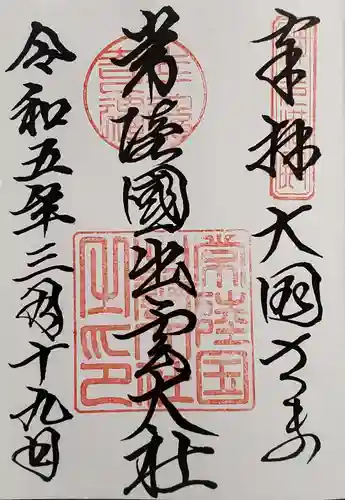 奉拝 大国さま
常陸國出雲大社
令和五年三月十九日
常陸国出雲大社之印